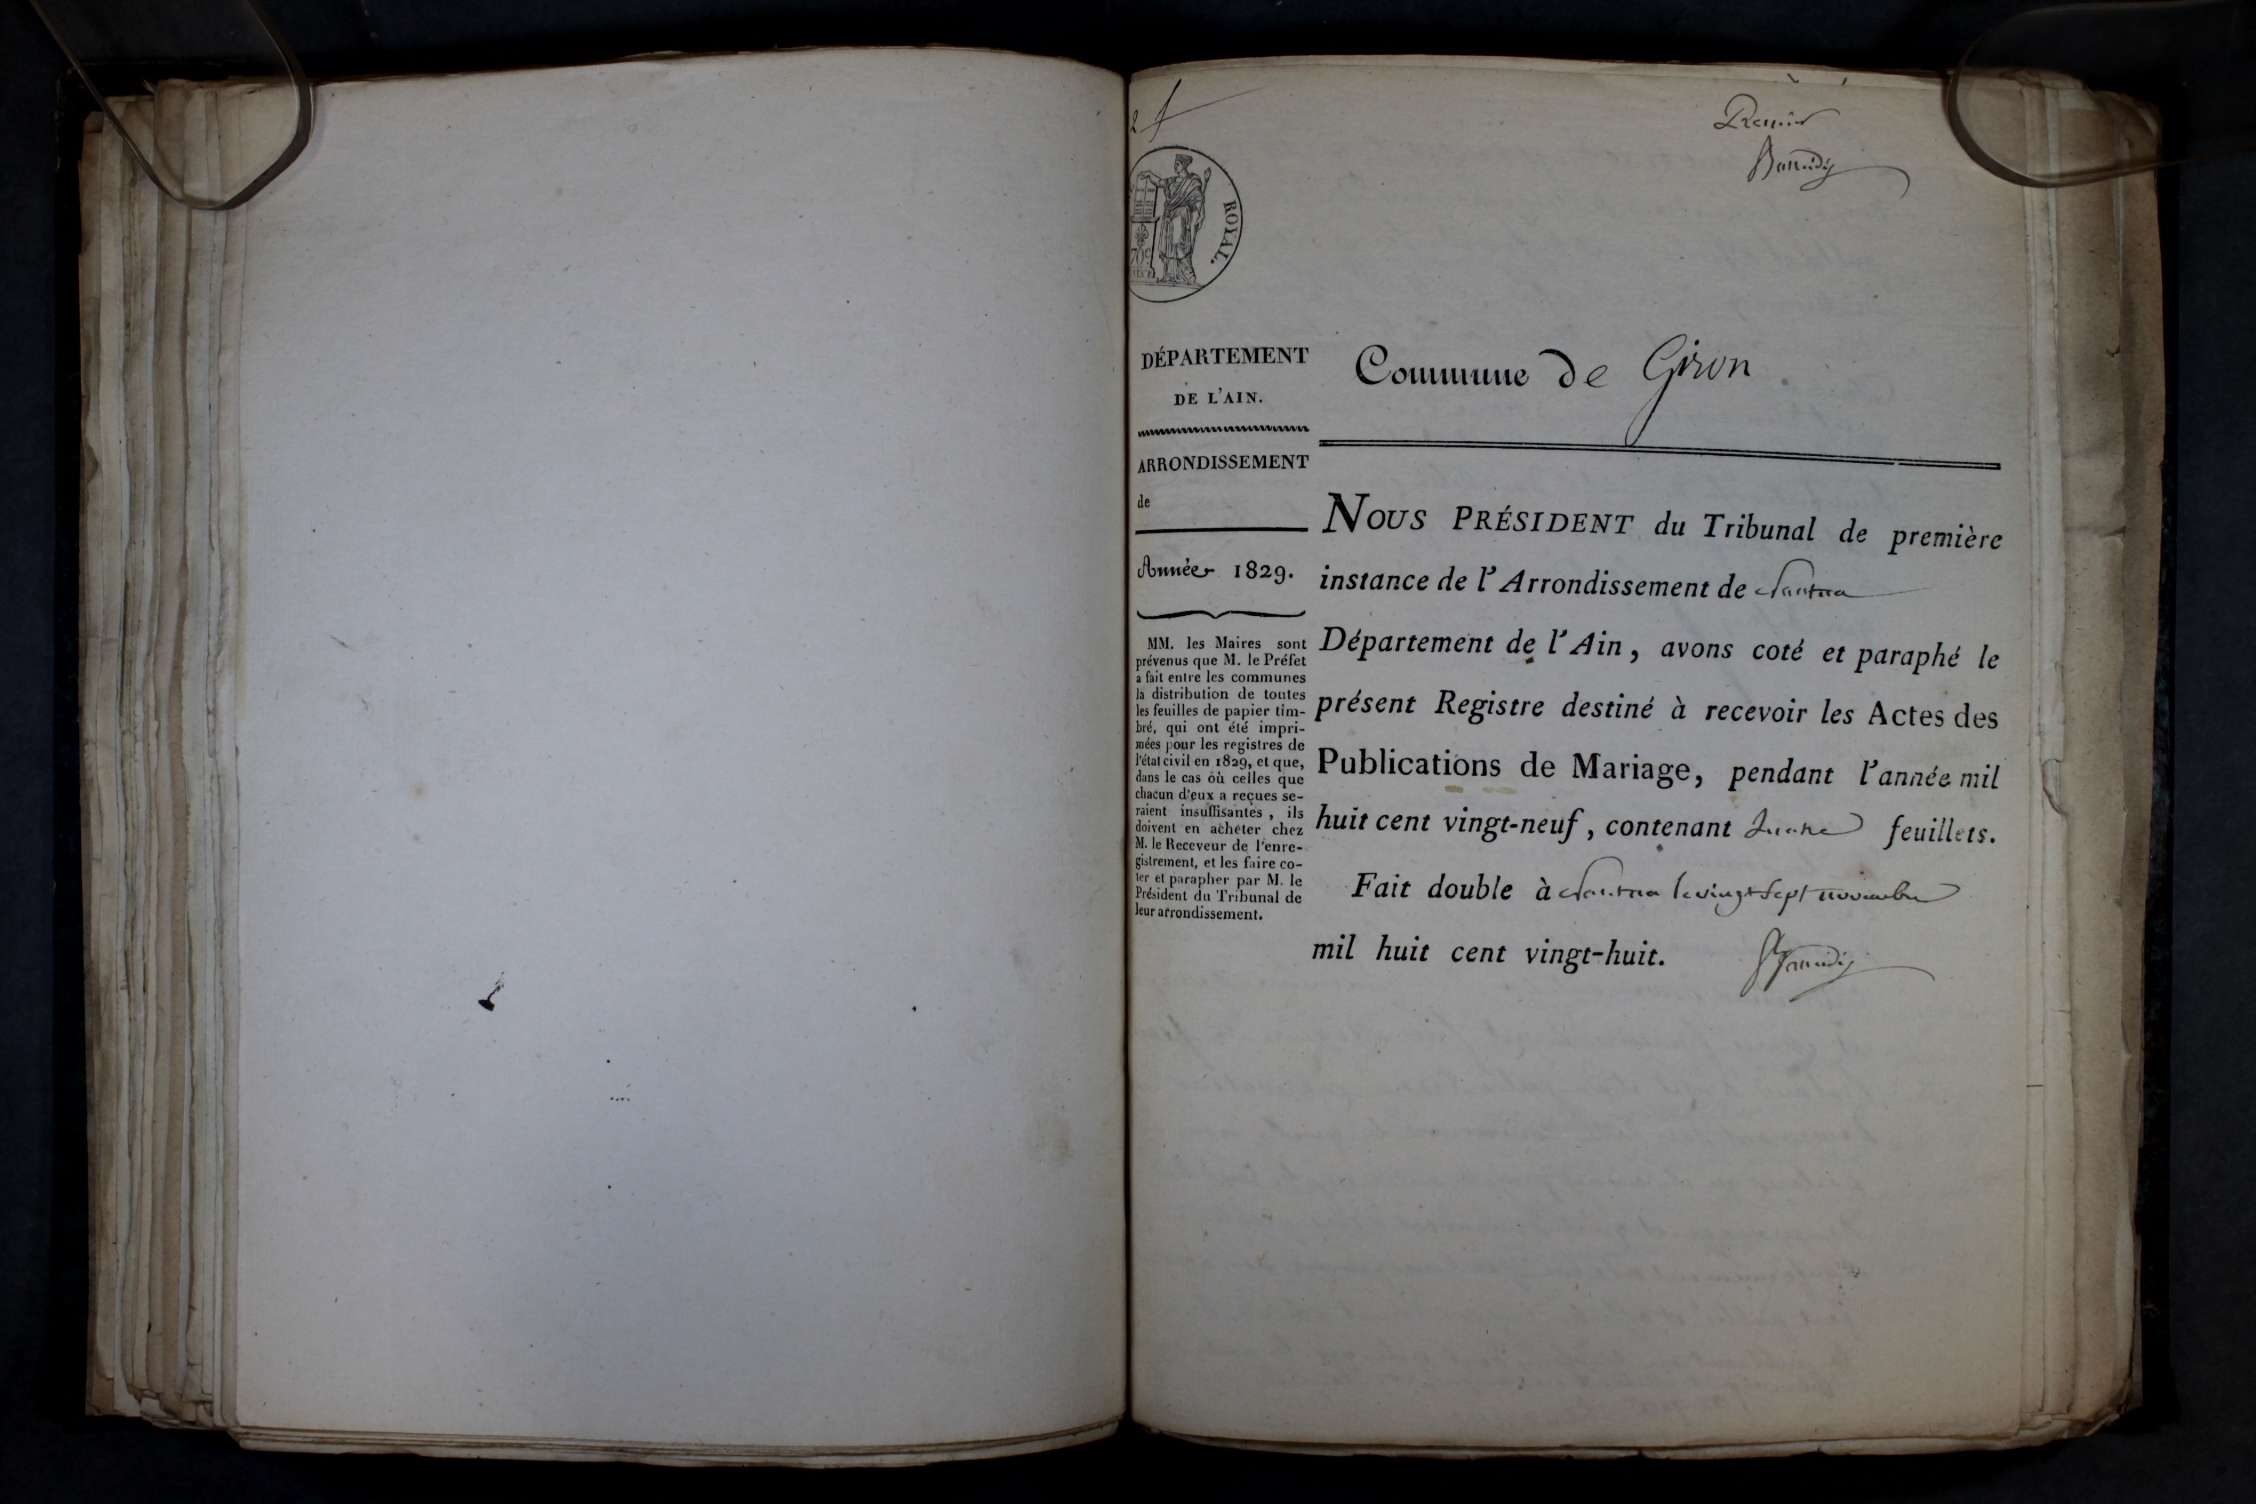 2
Premier
ROYAL.
DÉPARTEMENT
DE L'AIN.
ARRONDISSEMENT
de
Année 1829.
MM. les Maires sont
prévenus que M. le Préfet
a fait entre les communes
la distribution de toutes
les feuilles de papier tim-
bré, qui ont été impri-
mées pour les registres de
l'état civil en 1829, et que,
dans le cas où celles que
chacun d'eux a reçues se-
raient insuffisantes, ils
doivent en acheter chez
M. le Receveur de l'enre-
gistrement, et les faire co-
ter et parapher par M. le
Président du Tribunal de
leur arrondissement.
Commune de Giron
NOUS PRÉSIDENT du Tribunal de première
instance de l'Arrondissement de Nantua
Département de l'Ain, avons coté et paraphé le
présent Registre destiné à recevoir les Actes des
Publications de Mariage, pendant l'année mil
huit cent vingt-neuf, contenant quatre feuillets.
Fait double à Nantua le vingt sept novembre
mil huit cent vingt-huit.